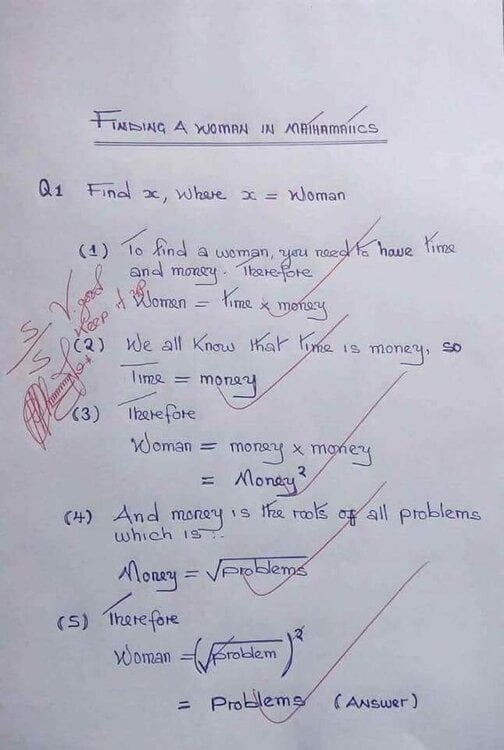 FINDING A WOMAN IN MATHAMATICS
Q1 Find x, where x = Woman
(1) To find a woman, you need to have time
and money. Therefore
Women = time × money
(2) We all know that time is money, so
Time = money
(3) Therefore
Woman = money × money
= Money²
(4) And money is the roots of all problems
which is :-
Money = √problems
(5) Therefore
Woman = (√problem)²
= Problems (Answer)
5/5
V. good
keep it up